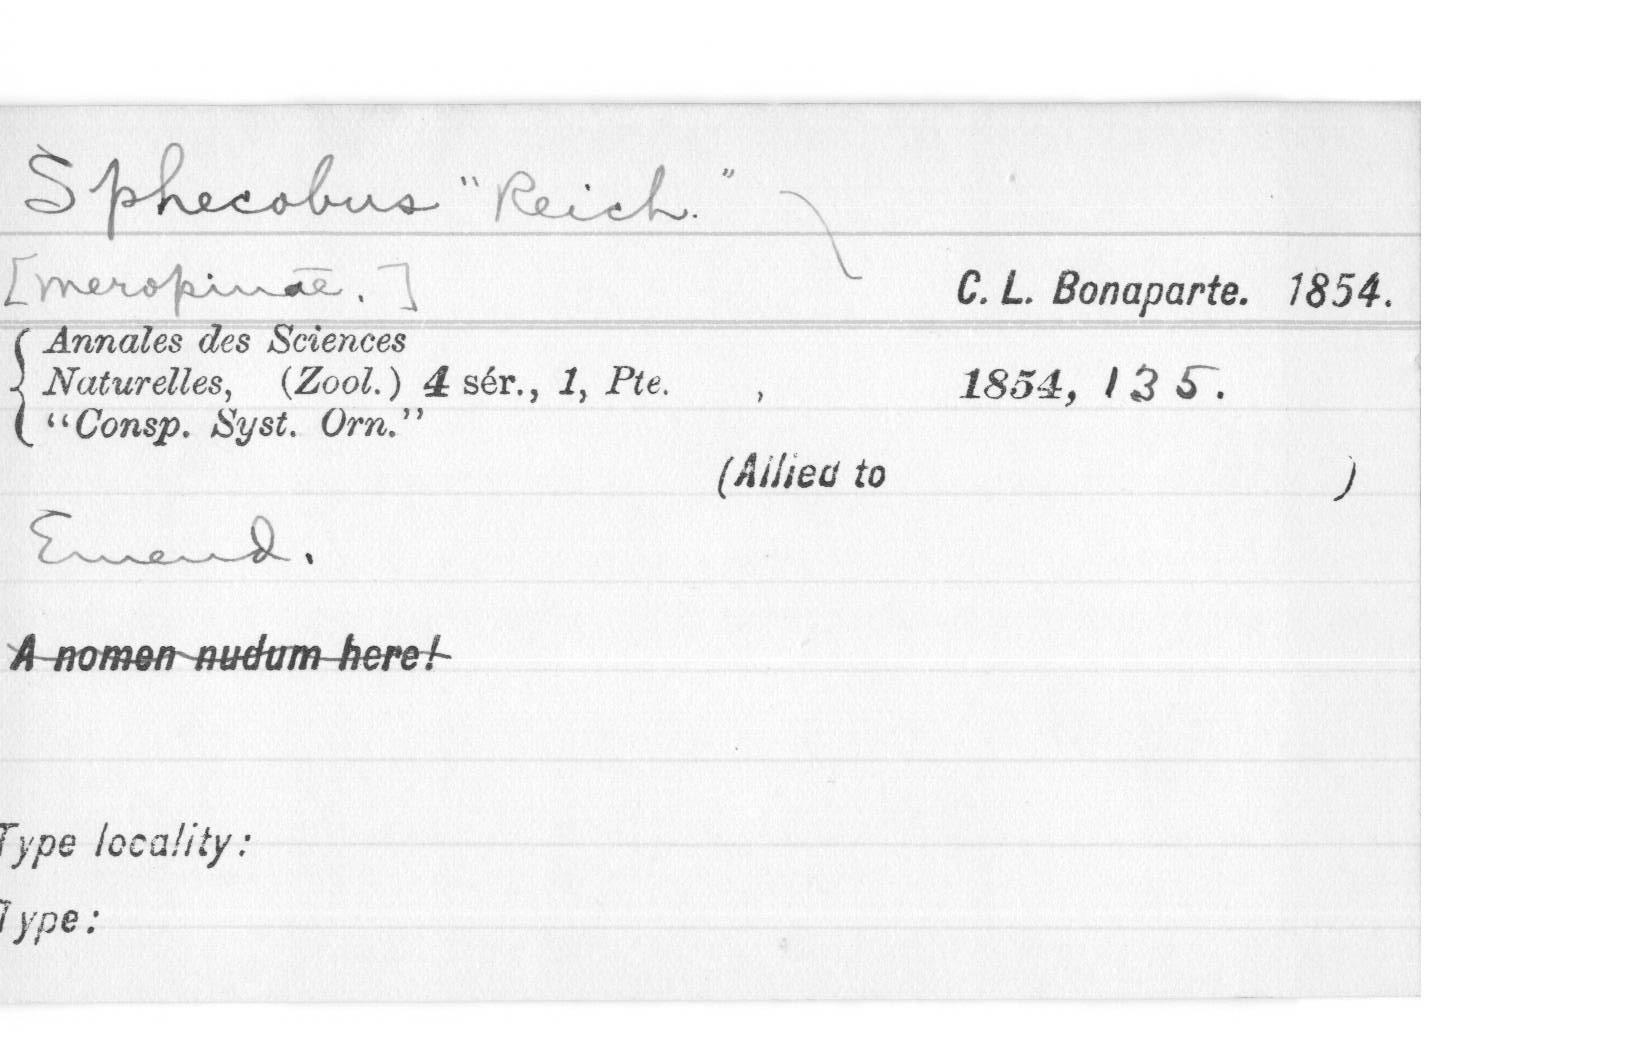 Sphecobus "Reich."
[meropinae.]
C. L. Bonaparte. 1854.
Annales des Sciences
Naturelles, (Zool.) 4 sér., 1, Pte. , 1854, 135.
"Consp. Syst. Orn."
(Allied to )
Emend.
A nomen nudum here!
Type locality:
Type: